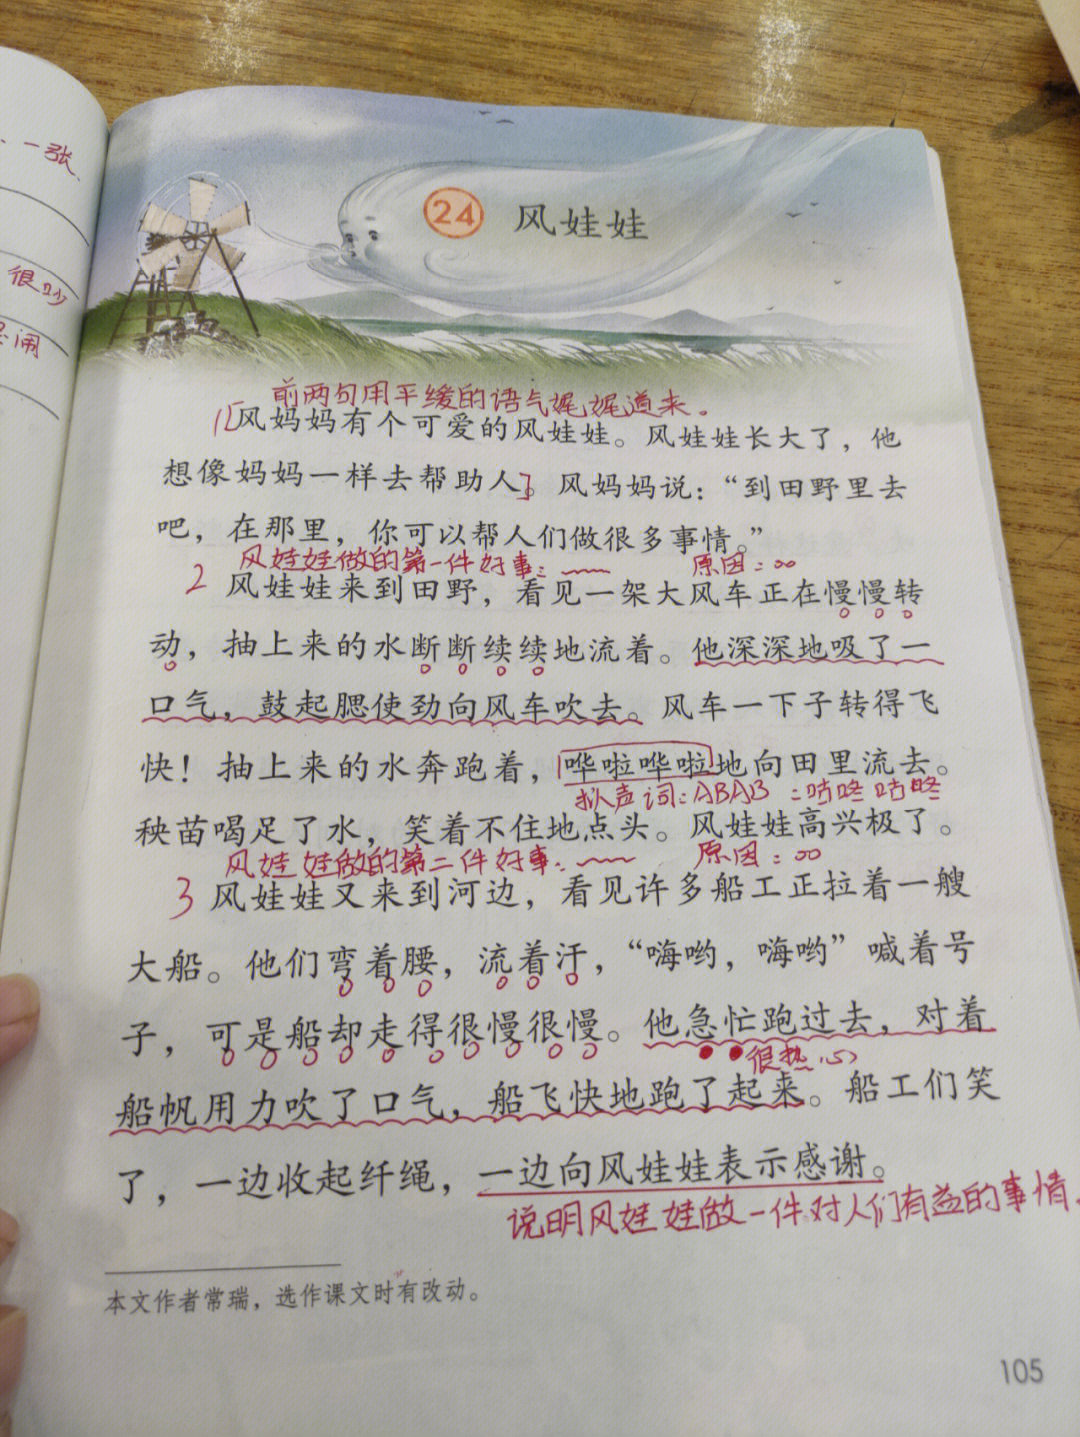 一张
很少
闹
24 风娃娃
前两句用平缓的语气娓娓道来。
1[风妈妈有个可爱的风娃娃。风娃娃长大了，他
想像妈妈一样去帮助人]。风妈妈说：“到田野里去
吧，在那里，你可以帮人们做很多事情。”
风娃娃做的第一件好事： 原因：
2 风娃娃来到田野，看见一架大风车正在慢慢转
动，抽上来的水断断续续地流着。他深深地吸了一
口气，鼓起腮使劲向风车吹去。风车一下子转得飞
快！抽上来的水奔跑着，哗啦哗啦地向田里流去。
拟声词：ABAB：咕咚咕咚
秧苗喝足了水，笑着不住地点头。风娃娃高兴极了。
风娃娃做的第二件好事： 原因：
3 风娃娃又来到河边，看见许多船工正拉着一艘
大船。他们弯着腰，流着汗，“嗨哟，嗨哟”喊着号
子，可是船却走得很慢很慢。他急忙跑过去，对着
很热心
船帆用力吹了口气，船飞快地跑了起来。船工们笑
了，一边收起纤绳，一边向风娃娃表示感谢。
说明风娃娃做一件对人们有益的事情.
本文作者常瑞，选作课文时有改动。
105